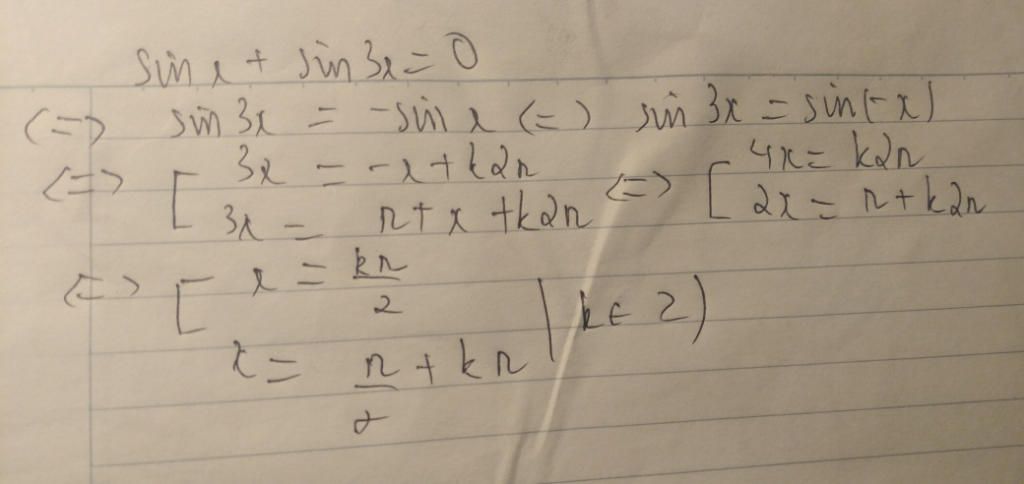 sin x + sin 3x = 0
<=> sin 3x = -sin x <=> sin 3x = sin(-x)
<=> [ 3x = -x + k2π <=> [ 4x = k2π
3x = π + x + k2π 2x = π + k2π
<=> [ x = kπ/2
x = π/2 + kπ (k ∈ Z)